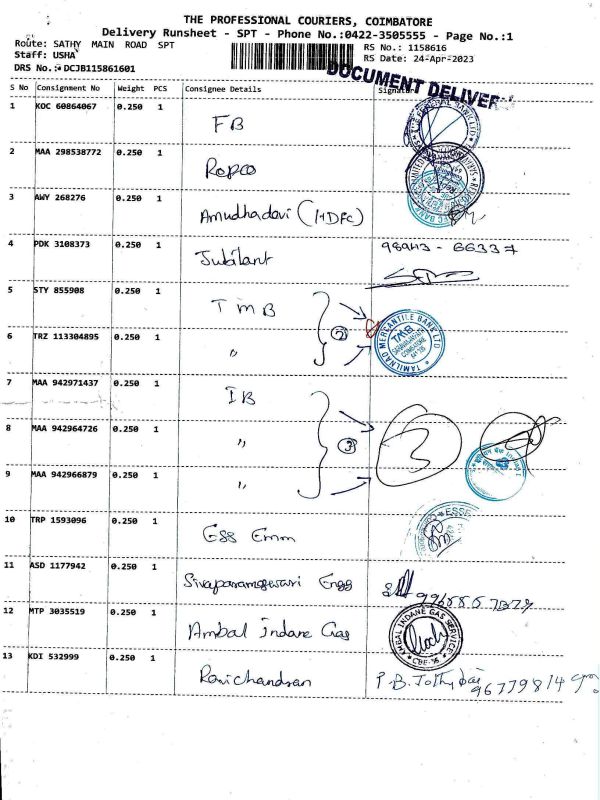 THE PROFESSIONAL COURIERS, COIMBATORE
Delivery Runsheet - SPT - Phone No.:0422-3505555 - Page No.:1
Route: SATHY MAIN ROAD SPT
RS No.: 1158616
Staff: USHA
RS Date: 24-Apr-2023
DRS No.: DCJB115861601
DOCUMENT DELIVER
S No Consignment No Weight PCS Consignee Details Signature
1 KOC 60864067 0.250 1 FB
2 MAA 298538772 0.250 1 Repco
3 AWY 268276 0.250 1 Amudhadevi (HDFC)
4 PDK 3108373 0.250 1 Jubilant 98943-66337
5 STY 855908 0.250 1 TMB
6 TRZ 113304895 0.250 1 " 2
TAMILNAD MERCANTILE BANK LTD
TMB
7 MAA 942971437 0.250 1 IB
8 MAA 942964726 0.250 1 " 3 3
9 MAA 942966879 0.250 1 "
10 TRP 1593096 0.250 1 Ess Emm
11 ASD 1177942 0.250 1 Sivaparameswari Engg
12 MTP 3035519 0.250 1 Ambal Indane Gas
AMBAL INDANE GAS SERVICE
CBE-35
13 KDI 532999 0.250 1 Ravichandran